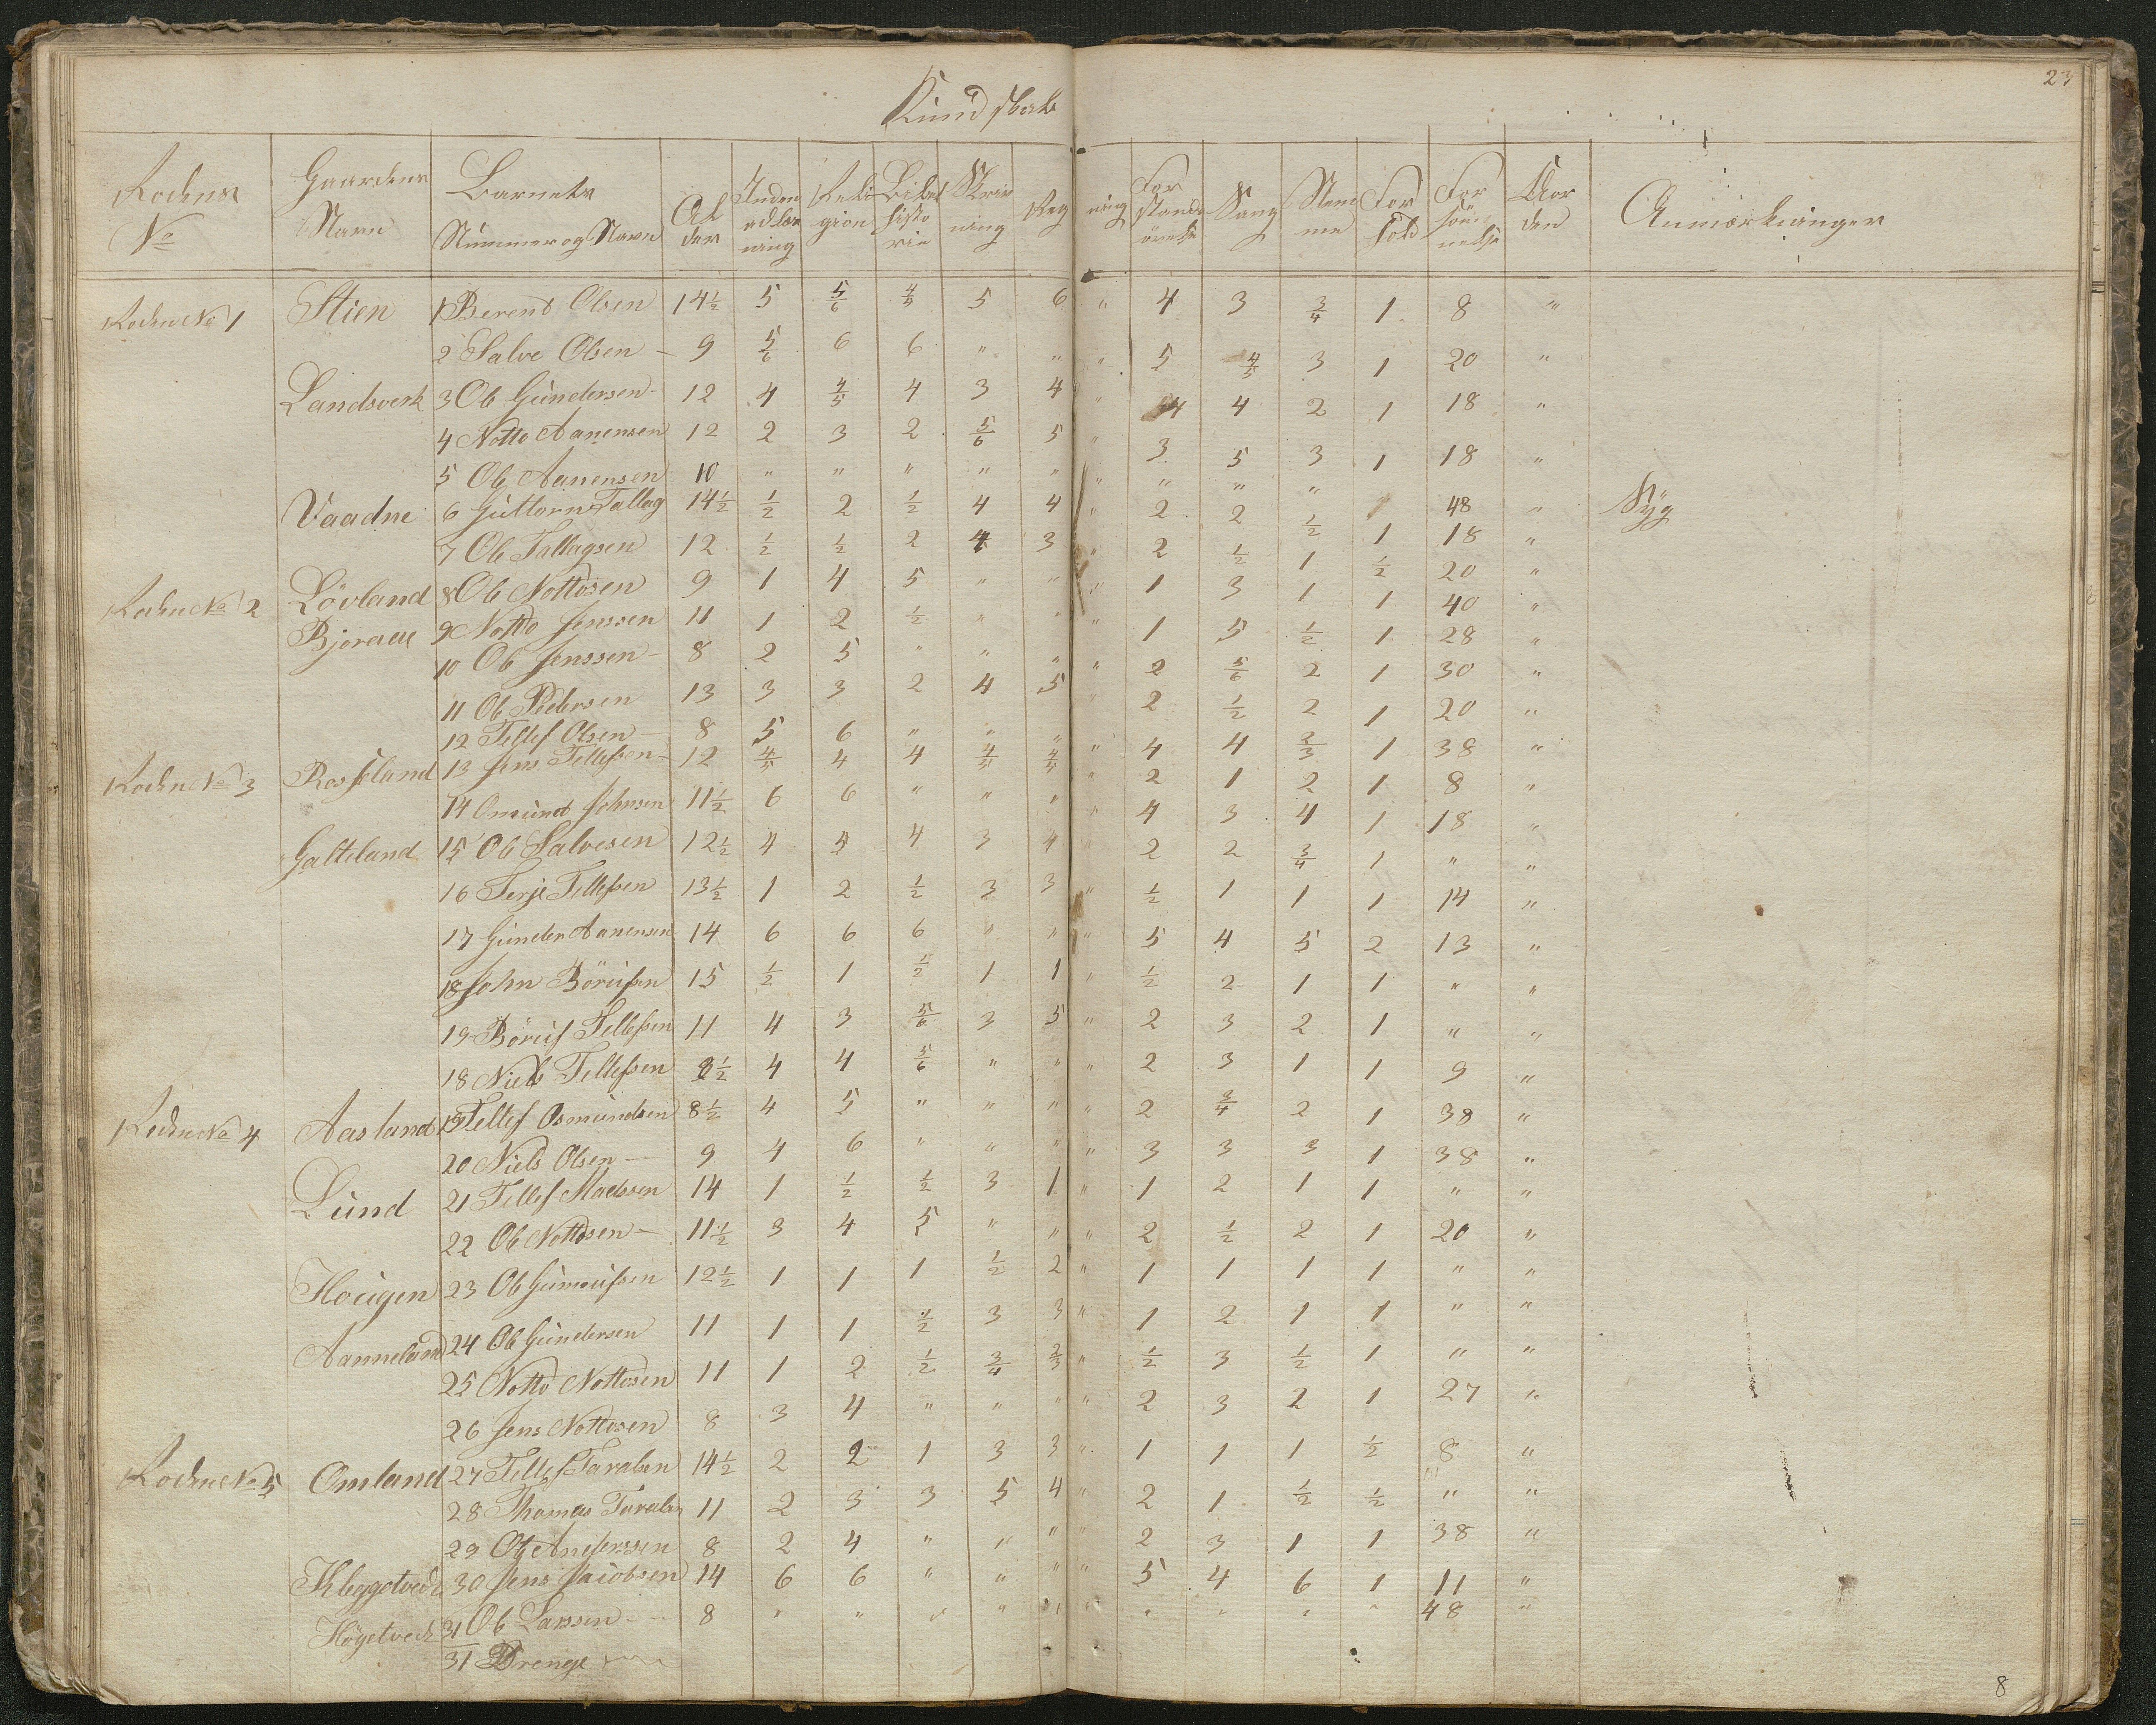 23
Kundskab
Rodens No Gaardens Navn Barnets Nummer og Navn Al der Inden adlæs ning Reli gion Bibel histo rie Skriv ning Reg ning For stands övelse Sang Stem me For hold For söm melse Aar den Anmærkninger
Roden No 1 Stien 1 Berend Olsen 14½ 5 5/6 4/5 5 6 " 4 3 3/4 1 8 "
2 Salve Olsen - 9 5/6 6 6 " " " 5 4/5 3 1 20 "
Landsverk 3 Ole Gundersen - 12 4 4/5 4 3 4 " 4 4 2 1 18 "
4 Notto Aanensen 12 2 3 2 5/6 5 " 3 5 3 1 18 "
5 Ole Aanensen 10 " " " " " " " " " 48 " Syg
Vaadne 6 Guttorm Tallag 14½ ½ 2 ½ 4 4 " 2 2 ½ 1 18 "
7 Ole Tallagsen 12 ½ ½ 2 4 3 " 2 ½ 1 ½ 20 "
Roden No 2 Lövland 8 Ole Nottosen 9 1 4 5 " " " 1 3 1 1 40 "
Bjoraae 9 Notto Jenssen 11 1 2 ½ " " " 1 5 ½ 1 28 "
10 Ole Jenssen - 8 2 5 " " " " 2 5/6 2 1 30 "
11 Ole Pedersen 13 3 3 2 4 5 " 2 ½ 2 1 20 "
12 Tellef Olsen - 8 5 6 " " " " 4 4 2/3 1 38 "
Roden No 3 Rosseland 13 Jens Tellefsen - 12 4/5 4 4 4/5 4/5 " 2 1 2 1 8 "
14 Omund Johnsen 11½ 6 6 " " " " 4 3 4 1 18 "
Galteland 15 Ole Salvesen 12½ 4 4 4 3 4 " 2 2 3/4 1 " "
16 Terje Tellefsen 13½ 1 2 ½ 3 3 " ½ 1 1 1 14 "
17 Gunder Aanensen 14 6 6 6 " " " 5 4 5 2 13 "
18 John Börufsen 15 ½ 1 ½ 1 1 " ½ 2 1 1 " "
19 Böruf Tellefsen 11 4 3 5/6 3 5 " 2 3 2 1 " "
18 Niels Tellefsen 8½ 4 4 5/6 " " " 2 3 1 1 9 "
Roden No 4 Aasland 19 Tellef Osmundsen 8½ 4 5 " " " " 2 3/4 2 1 38 "
20 Niels Olsen - 9 4 6 " " " " 3 3 3 1 38 "
Lund 21 Tellef Madssen 14 1 ½ ½ 3 1 " 1 2 1 1 " "
22 Ole Nottosen - 11½ 3 4 5 " " " 2 ½ 2 1 20 "
Hougen 23 Ole Gunnufsen 12½ 1 1 1 ½ 2 " 1 1 1 1 " "
Aanneland 24 Ole Gundersen 11 1 1 ½ 3 3 " 1 2 1 1 " "
25 Notto Nottosen 11 1 2 ½ 3/4 2/3 " ½ 3 ½ 1 " "
26 Jens Nottosen 8 3 4 " " " " 2 3 2 1 27 "
Roden No 5 Omland 27 Tellef Taralsen 14½ 2 2 1 3 3 " 1 1 1 ½ 8 "
28 Thomas Taralsen 11 2 3 3 5 4 " 2 1 ½ ½ " "
29 Ole Anderssen 8 2 4 " " " " 2 3 1 1 38 "
Kleggetved 30 Jens Jacobsen 14 6 6 " " " " 5 4 6 1 11 "
Högetved 31 Ole Larssen - 8 " " " " " " " " " " 48 "
31 Drenge
8